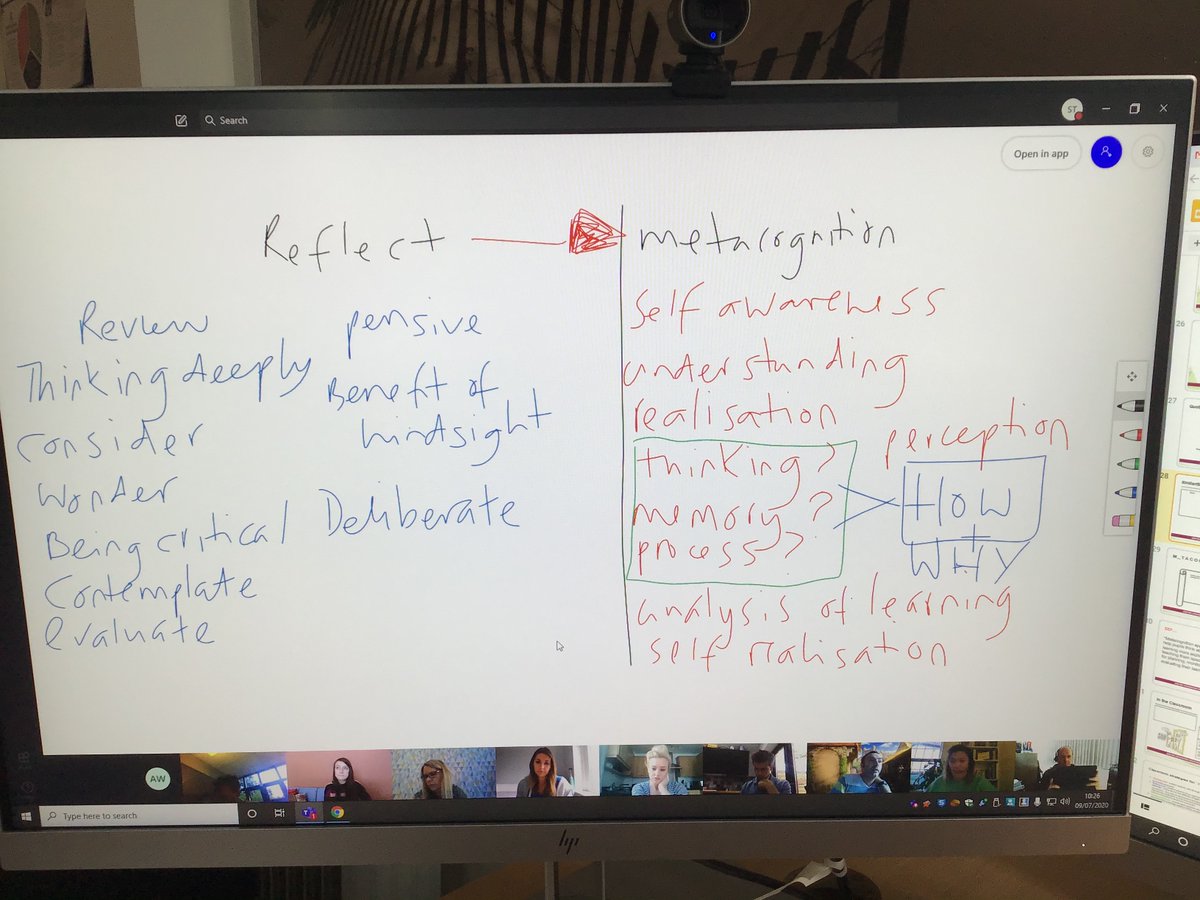 Search
ST
Open in app
Reflect
metacognition
Review
pensive
Thinking deeply
Benefit of
hindsight
consider
wonder
Being critical
Deliberate
Contemplate
evaluate
self awareness
understanding
realisation
perception
thinking?
memory?
process?
HOW
+
WHY
analysis of learning
self rialisaton
AW
Type here to search
10:26
09/07/2020
hp
26
27
28
29
M_TACO
In the Classroom